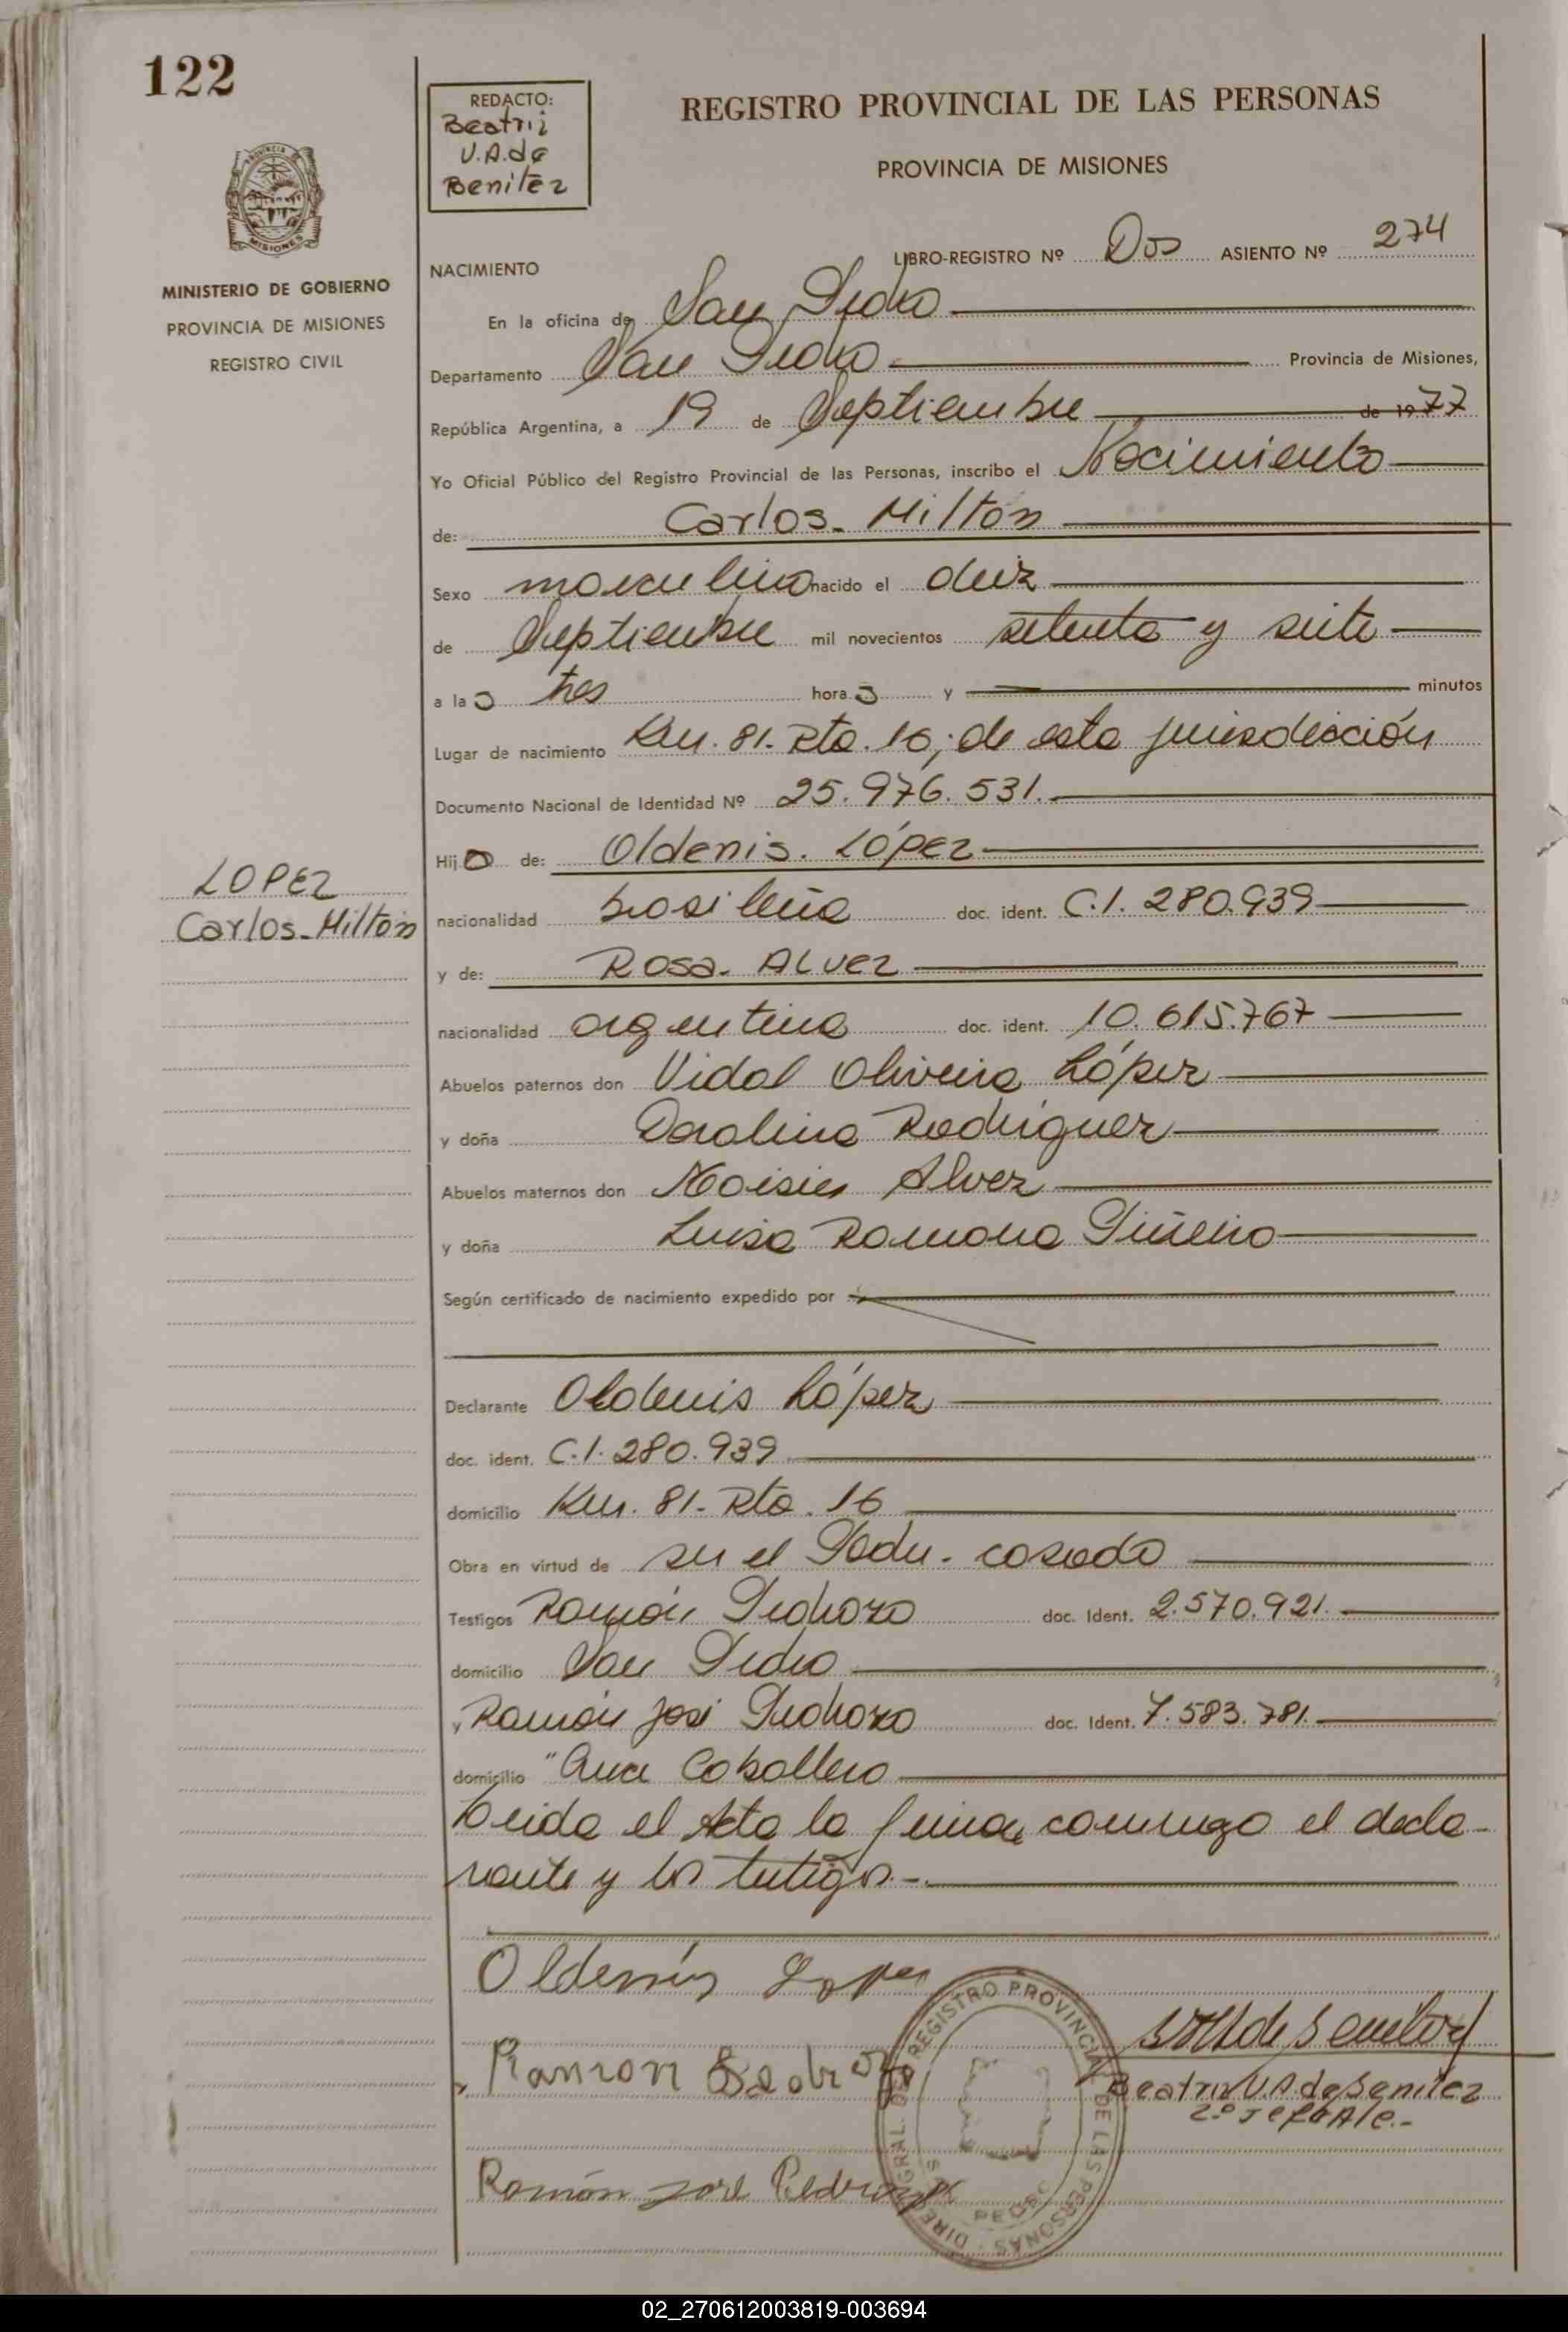 122
REDACTO:
Beatriz
V.A.de
Benitez
REGISTRO PROVINCIAL DE LAS PERSONAS
PROVINCIA DE MISIONES
PROVINCIA
MISIONES
MINISTERIO DE GOBIERNO
PROVINCIA DE MISIONES
REGISTRO CIVIL
LIBRO-REGISTRO Nº Dos ASIENTO Nº 274
NACIMIENTO
En la oficina de San Pedro
Departamento San Pedro Provincia de Misiones,
República Argentina, a 19 de Septiembre de 1977
Yo Oficial Público del Registro Provincial de las Personas, inscribo el Nacimiento
de: Carlos-Milton
Sexo masculino nacido el diez
de Septiembre mil novecientos setenta y siete
a las tres horas y minutos
Lugar de nacimiento Km. 81-Rta. 16; de esta jurisdicción
Documento Nacional de Identidad Nº 25.976.531.
Hijo de: Oldenis. López
LOPEZ
Carlos-Milton
nacionalidad brasileña doc. ident. C.I. 280.939
y de: Rosa. ALVEZ
nacionalidad argentina doc. ident. 10.615.767
Abuelos paternos don Vidal Oliveira López
y doña Rodriguez
Abuelos maternos don Moisés Alvez
y doña Luisa Ramona Piñeiro
Según certificado de nacimiento expedido por
Declarante Oldenis López
doc. ident. C.I. 280.939
domicilio Km. 81-Rta. 16
Obra en virtud de ser el Padre-casado
Testigos Ramón Pedrozo doc. Ident. 2.570.921.
domicilio San Pedro
y Ramón José Pedrozo doc. Ident. 7.583.781.
domicilio "Cruce Caballero
Leida el Acta la firman conmigo el decla-
rante y los testigos.-
Oldenis Lopez
Ramon Pedrozo
Beatriz V.A de Benitez
2º Jefe
Ramón José Pedrozo
DIREC. GRAL. DEL REGISTRO PROVINCIAL DE LAS PERSONAS
PEDRO
02_270612003819-003694